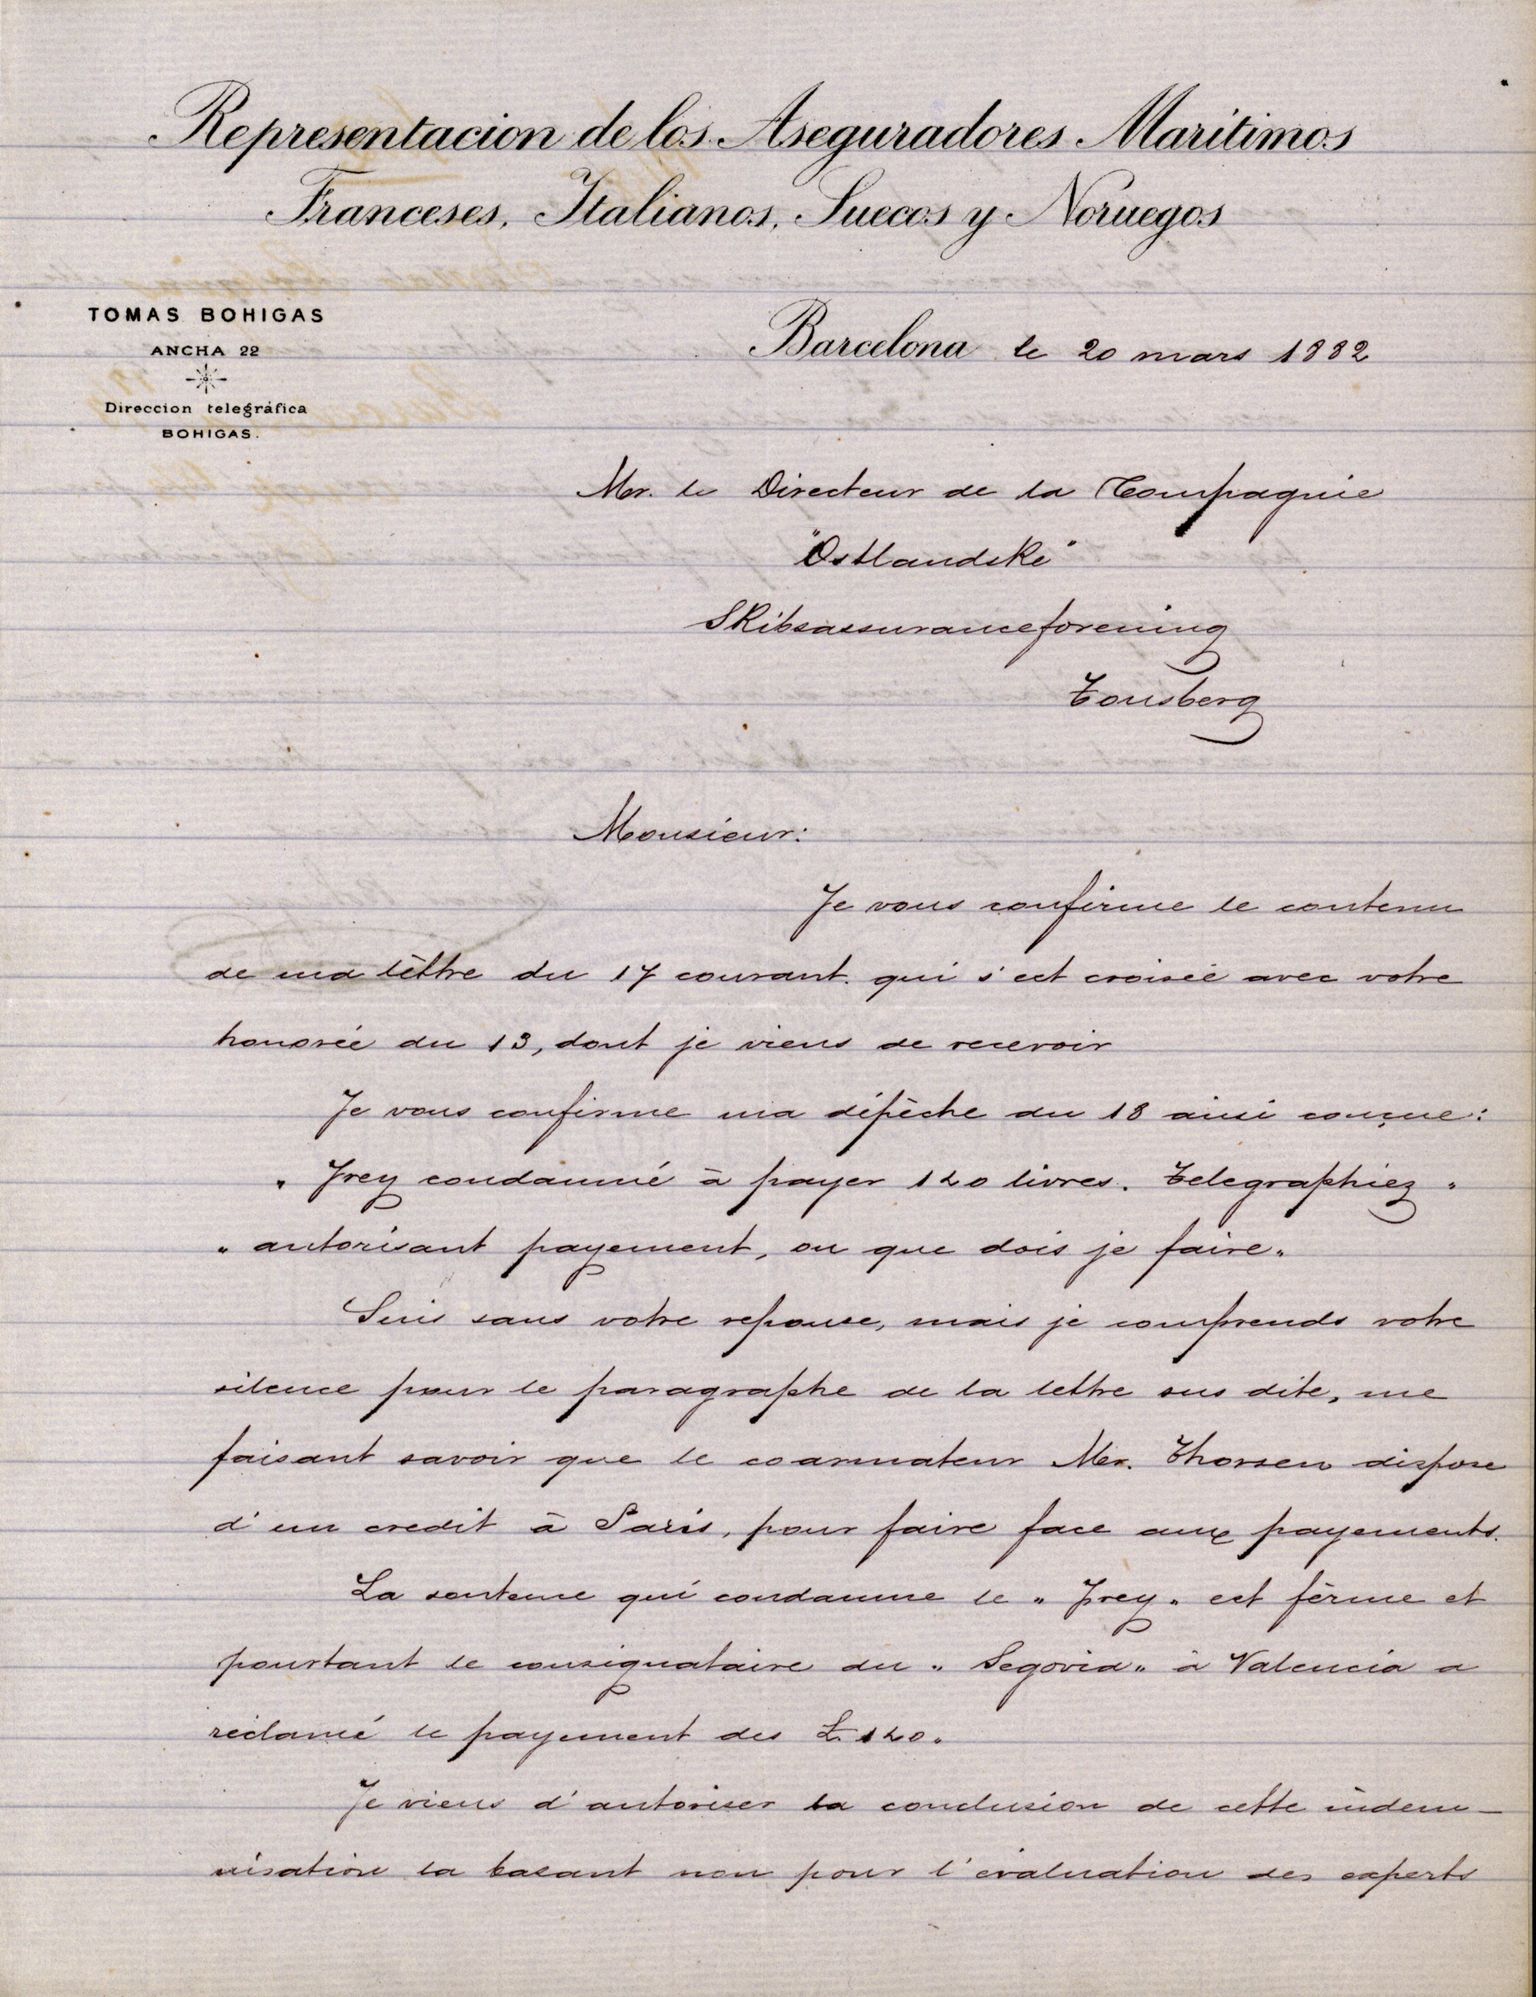 Representacion de los Aseguradores Maritimos
Franceses, Italianos, Suecos y Noruegos
TOMAS BOHIGAS
ANCHA 22
Direccion telegráfica
BOHIGAS.
Barcelona le 20 mars 1882
Mr. le Directeur de la Compagnie
"Ostlandske"
Skibsassuranceforening
Tonsberg
Monsieur:
Je vous confirme le contenu
de ma lèttre du 17 courant. qui s'est croisée avec votre
honorée du 13, dont je viens de recevoir
Je vous confirme ma dépèche du 18 ainsi conçue:
" Frey condamné à payer 120 livres. Telegraphiez "
" autorisant payement, ou que dois je faire"
Suis sans votre reponse, mais je comprends votre
silence pour le paragraphe de la lettre sus dite, me
faisant savoir que le coarmateur Mr. Thorsen dispose
d'un credit à Paris, pour faire face aux payements.
La sentence qui condamne le "Frey" est fèrme et
pourtant le consignataire du "Segovia" à Valencia a
réclamé le payement des £ 120.
Je viens d'autoriser la conclusion de cette indem-
nisation la basant non pour l'évaluation des experts